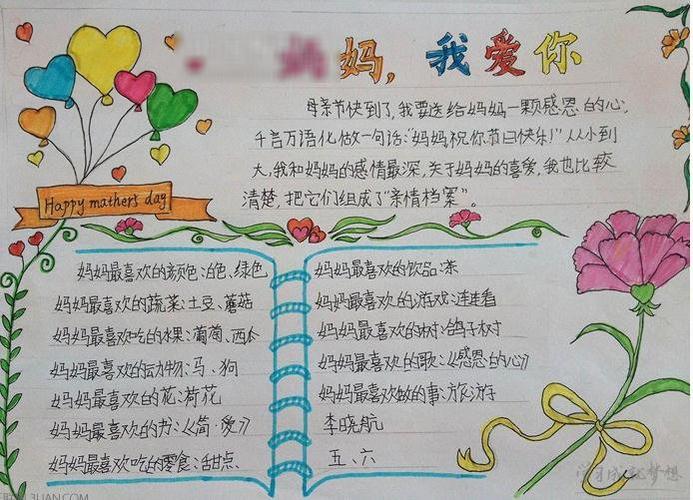 妈，我爱你
母亲节快到了，我要送给妈妈一颗感恩的心，
千言万语化做一句话："妈妈祝你节日快乐！"从小到
大，我和妈妈的感情最深，关于妈妈的喜爱，我也比较
清楚，把它们组成了"亲情档案"。
Happy mathers day
妈妈最喜欢的颜色：白色、绿色
妈妈最喜欢的蔬菜：土豆、蘑菇
妈妈最喜欢吃的水果：葡萄、西瓜
妈妈最喜欢的动物：马、狗
妈妈最喜欢的花：荷花
妈妈最喜欢的书：《简·爱》
妈妈最喜欢吃的零食：甜点、
妈妈最喜欢的饮品：茶
妈妈最喜欢的游戏：连连看
妈妈最喜欢的树：鸽子树
妈妈最喜欢的歌：《感恩的心》
妈妈最喜欢做的事：旅游
李晓航
五、六
学习成就梦想